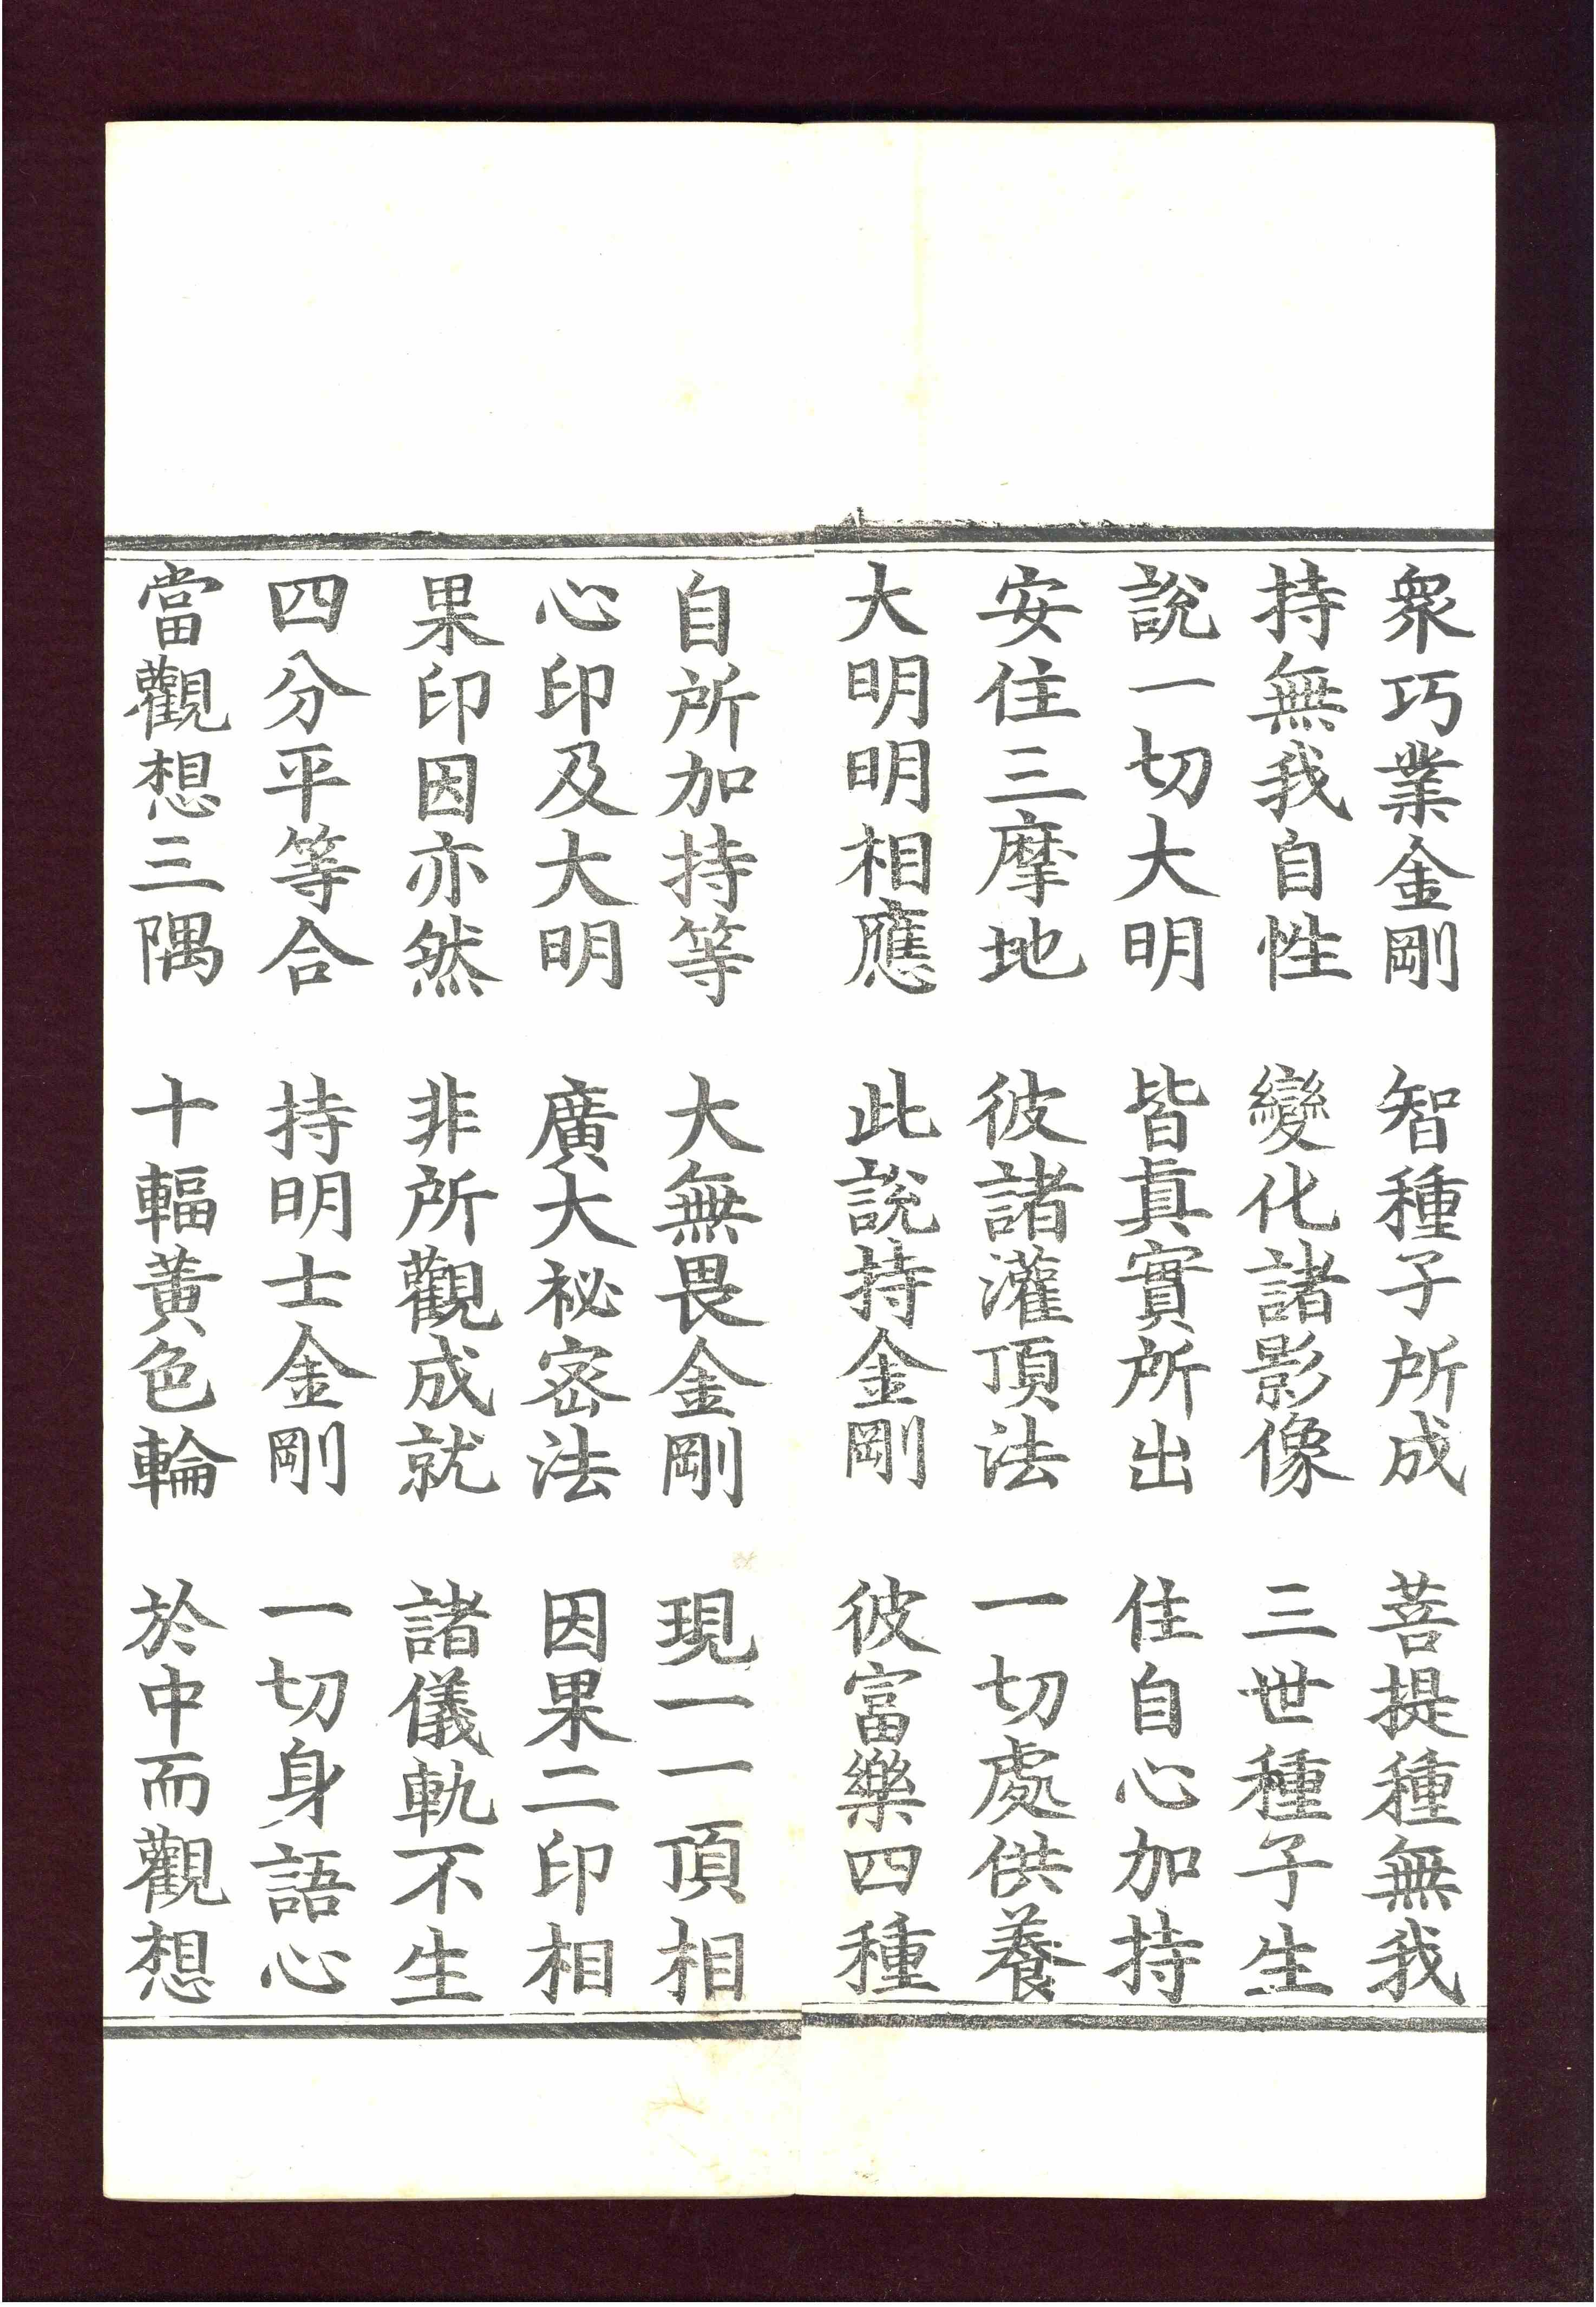 衆巧業金剛　智種子所成　菩提種無我
持無我自性　變化諸影像　三世種子生
說一切大明　皆眞實所出　住自心加持
安住三摩地　彼諸灌頂法　一切處供養
大明明相應　此說持金剛　彼富樂四種
自所加持等　大無畏金剛　現一一頂相
心印及大明　廣大祕密法　因果二印相
果印因亦然　非所觀成就　諸儀軌不生
四分平等合　持明士金剛　一切身語心
當觀想三隅　十輻黃色輪　於中而觀想